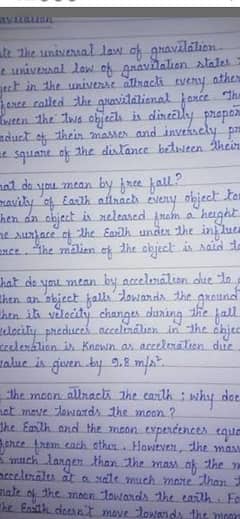 avitation
te the universal law of gravitation.
e universal law of gravitation states
ject in the universe attracts every other
force called the gravitational force. The
tween the two objects is directly propor
oduct of their masses and inversely pr
e square of the distance between their
hat do you mean by free fall?
ravity of Earth attracts every object to
hen an object is released from a height
he surface of the Earth under the influe
orce. The motion of the object is said t
hat do you mean by acceleration due to g
hen an object falls towards the ground
hen its velocity changes during the fall
velocity produces acceleration in the objec
cceleration is known as acceleration due
value is given by 9.8 m/s².
the moon attracts the earth; why doe
not move towards the moon?
the Earth and the moon experiences equa
force from each other. However, the mass
s much larger than the mass of the m
accelerates at a rate much more than t
rate of the moon towards the earth. Fo
the Earth doesn't move towards the moon